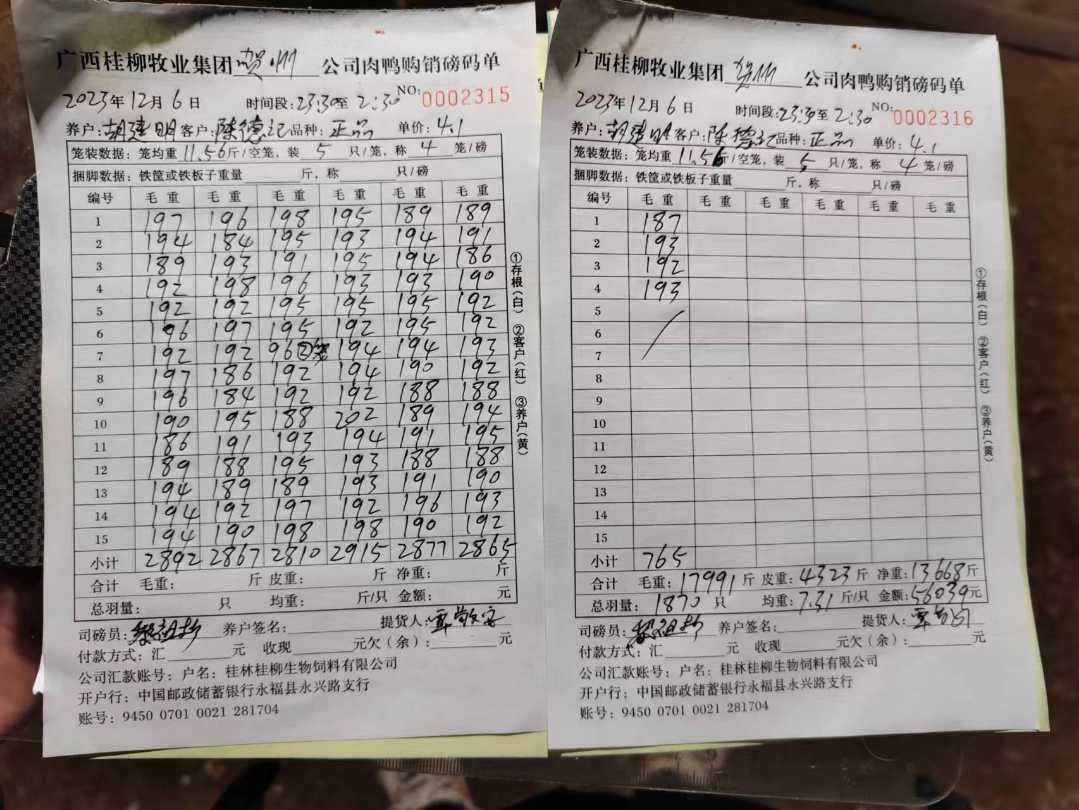 广西桂柳牧业集团 贺州 公司肉鸭购销磅码单
2023年12月6日 时间段:23:30至2:30 NO: 0002315
养户:胡建明 客户:陈德记 品种:正品 单价:4.1
笼装数据:笼均重11.56斤/空笼,装5只/笼,称4笼/磅
捆脚数据:铁筐或铁板子重量 斤,称 只/磅
编号 毛重 毛重 毛重 毛重 毛重 毛重
1 197 196 198 195 189 189
2 194 184 195 193 194 191
3 189 193 191 195 194 186
4 192 198 196 193 193 190
5 192 192 195 195 195 192
6 196 197 195 192 195 192
7 192 192 96②笼 194 194 193
8 197 186 192 194 190 192
9 196 184 192 192 188 188
10 190 195 188 202 189 194
11 186 191 193 194 191 195
12 189 188 195 193 188 188
13 194 189 189 193 191 190
14 194 192 197 192 196 193
15 194 190 198 198 190 192
小计 2892 2867 2810 2915 2877 2865
合计 毛重: 斤 皮重: 斤 净重: 斤
总羽量: 只 均重: 斤/只 金额: 元
司磅员: 养户签名: 提货人:
付款方式:汇 元 收现 元欠(余): 元
公司汇款账号:户名:桂林桂柳生物饲料有限公司
开户行:中国邮政储蓄银行永福县永兴路支行
账号:9450 0701 0021 281704
①存根(白) ②客户(红) ③养户(黄)
广西桂柳牧业集团 贺州 公司肉鸭购销磅码单
2023年12月6日 时间段:23:30至2:30 NO: 0002316
养户:胡建明 客户:陈德记 品种:正品 单价:4.1
笼装数据:笼均重11.56斤/空笼,装5只/笼,称4笼/磅
捆脚数据:铁筐或铁板子重量 斤,称 只/磅
编号 毛重 毛重 毛重 毛重 毛重 毛重
1 187
2 193
3 192
4 193
5
6
7
8
9
10
11
12
13
14
15
小计 765
合计 毛重:17991斤 皮重:4323斤 净重:13668斤
总羽量:1870只 均重:7.31斤/只 金额:56039元
司磅员: 养户签名: 提货人:
付款方式:汇 元 收现 元欠(余): 元
公司汇款账号:户名:桂林桂柳生物饲料有限公司
开户行:中国邮政储蓄银行永福县永兴路支行
账号:9450 0701 0021 281704
①存根(白) ②客户(红) ③养户(黄)